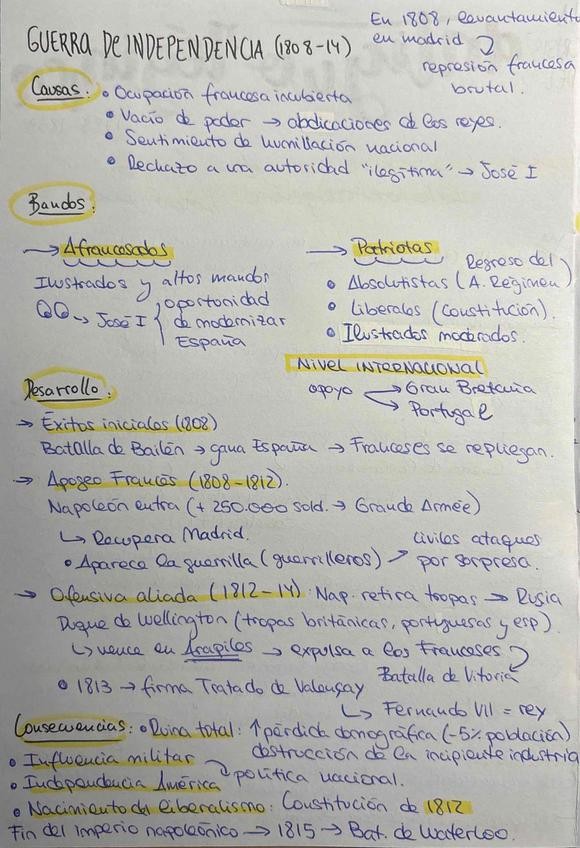 En 1808, levantamiento
GUERRA DE INDEPENDENCIA (1808-14)
en madrid
represión francesa
brutal.
Causas: • Ocupación francesa incubierta
• Vacío de poder → abdicaciones de los reyes.
• Sentimiento de humillación nacional
• Rechazo a una autoridad "ilegítima" → José I
Bandos:
→ Afrancesados
Ilustrados y altos mandos
→ José I { oportonidad
de modernizar
España
→ Patriotas
Regreso del
• Absolutistas (A. Régimen)
• Liberales (Constitución).
• Ilustrados moderados.
NIVEL INTERNACIONAL
apoyo → Gran Bretaña
→ Portugal
Desarrollo:
→ Éxitos iniciales (1808)
Batalla de Bailén → gana España → Franceses se repliegan.
→ Apogeo Francés (1808-1812).
Napoleón entra (+ 250.000 sold. → Grande Armée)
↳ Recupera Madrid.
• Aparece la guerrilla (guerrilleros) → civiles ataques
por sorpresa.
→ Ofensiva aliada (1812-14): Nap. retira tropas → Rusia
Duque de Wellington (tropas británicas, portuguesas y esp).
↳ vence en Arapiles → expulsa a los Franceses
Batalla de Vitoria
• 1813 → firma Tratado de Valençay
↳ Fernando VII = rey
Consecuencias: • Ruina total: ↑ pérdida demográfica (-5% población)
destrucción de la incipiente industria
• Influencia militar → política nacional.
• Independencia América
• Nacimiento del liberalismo: Constitución de 1812
Fin del imperio napoleónico → 1815 → Bat. de Waterloo.